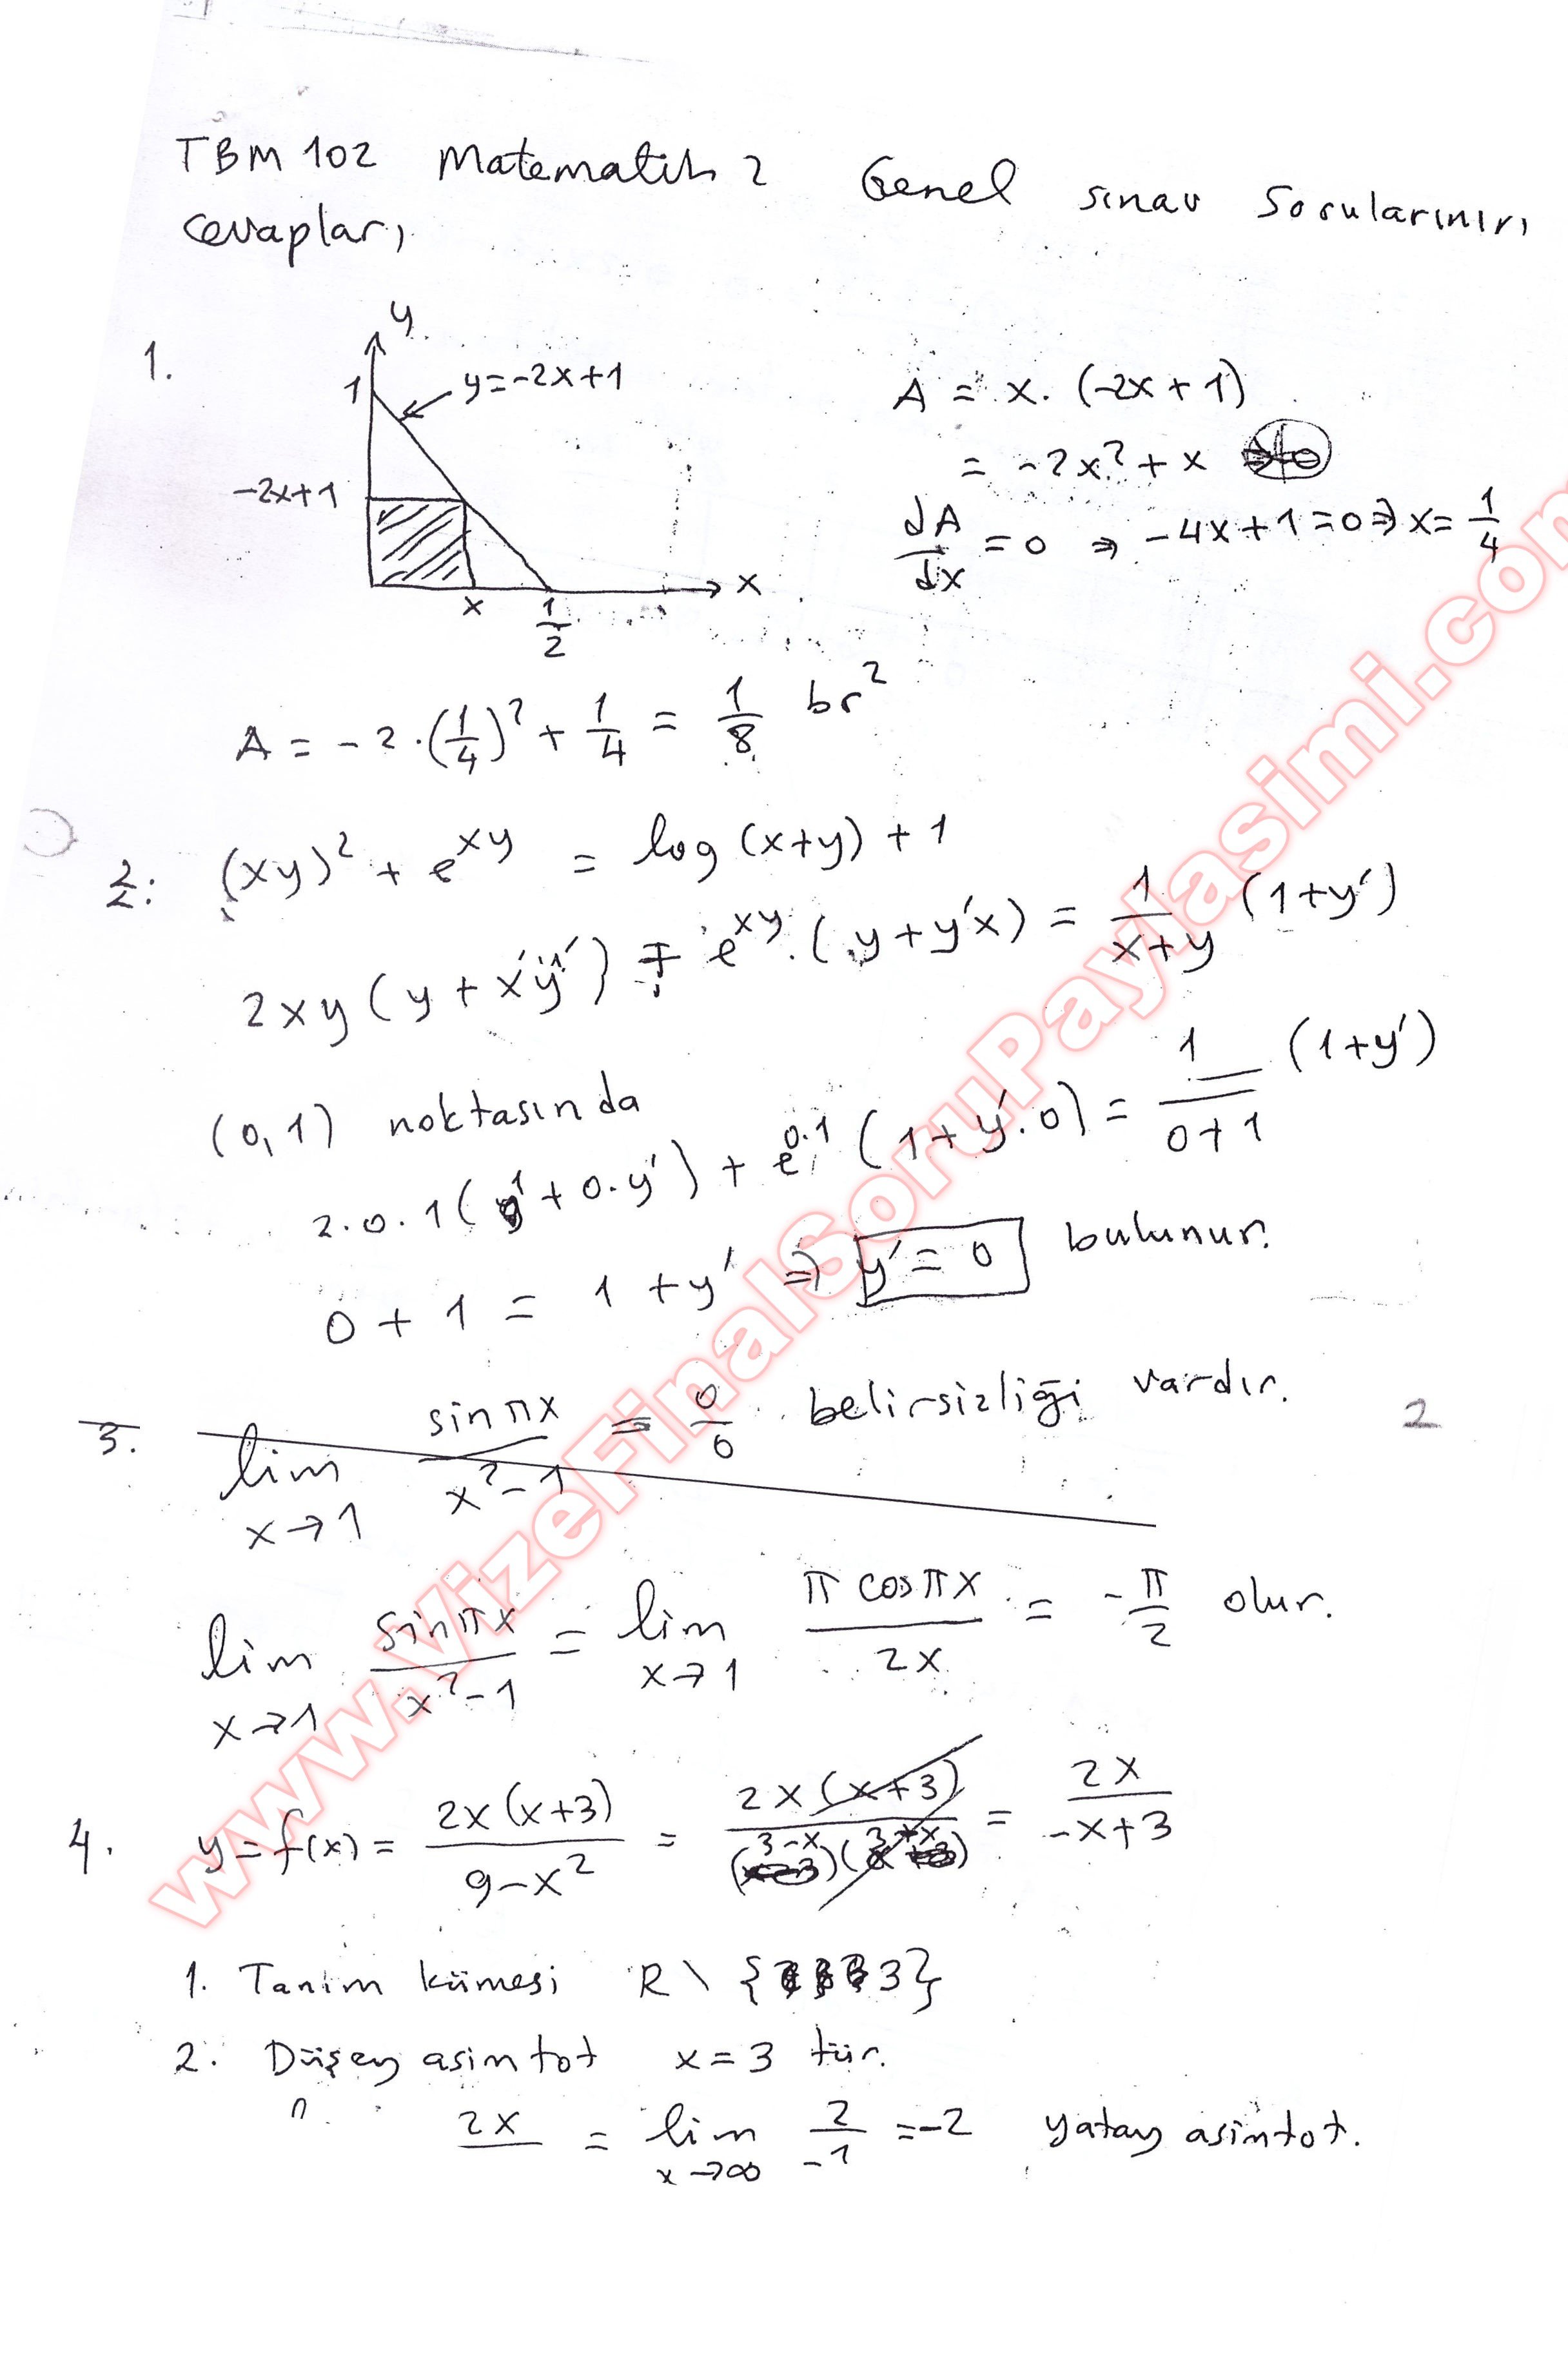 TBM 102 Matematik 2 Genel sınav Sorularının
Cevapları
1.
y
1
y=-2x+1
-2x+1
x
1/2
x
A = x.(-2x+1)
= -2x²+x
dA/dx = 0 ⇒ -4x+1=0 ⇒ x=1/4
A = -2.(1/4)² + 1/4 = 1/8 br²
2: (xy)² + e^xy = log(x+y)+1
2xy(y+xy') + e^xy.(y+y'x) = 1/(x+y) (1+y')
(0,1) noktasında
2.0.1(1+0.y') + e^0.1 (1+y'.0) = 1/(0+1) (1+y')
0+1 = 1+y' ⇒ y'=0 bulunur.
3. lim x→1 sinπx/(x²-1) = 0/0 belirsizliği vardır.
2
lim x→1 sinπx/(x²-1) = lim x→1 π cosπx/2x = -π/2 olur.
4. y=f(x)= 2x(x+3)/(9-x²) = 2x(x+3)/((3-x)(3+x)) = 2x/(-x+3)
1. Tanım kümesi R\{3}
2. Düşey asimtot x=3 tür.
2x = lim x→∞ 2/-1 =-2 yatay asimtot.
www.VizeFinalSoruPaylasimi.com